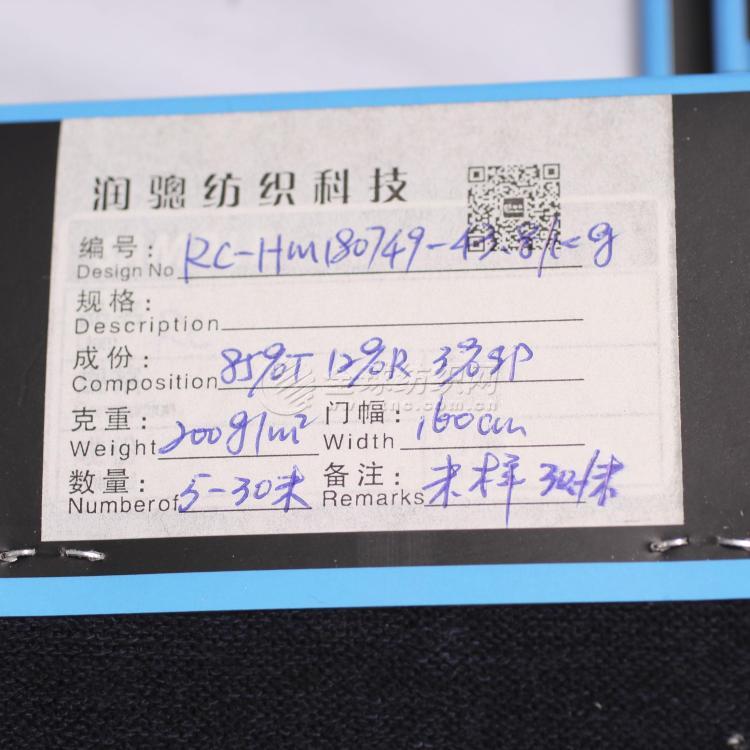 润骢纺织科技
编号: RC-HM180749-43.8/kg
Design No
规格:
Description
成份: 85%T 12%R 3%SP
Composition
全球纺织网
www.tnc.com.cn
克重: 200g/m² 门幅: 160cm
Weight Width
数量: 5-30米 备注: 米样 30/米
Numberof Remarks